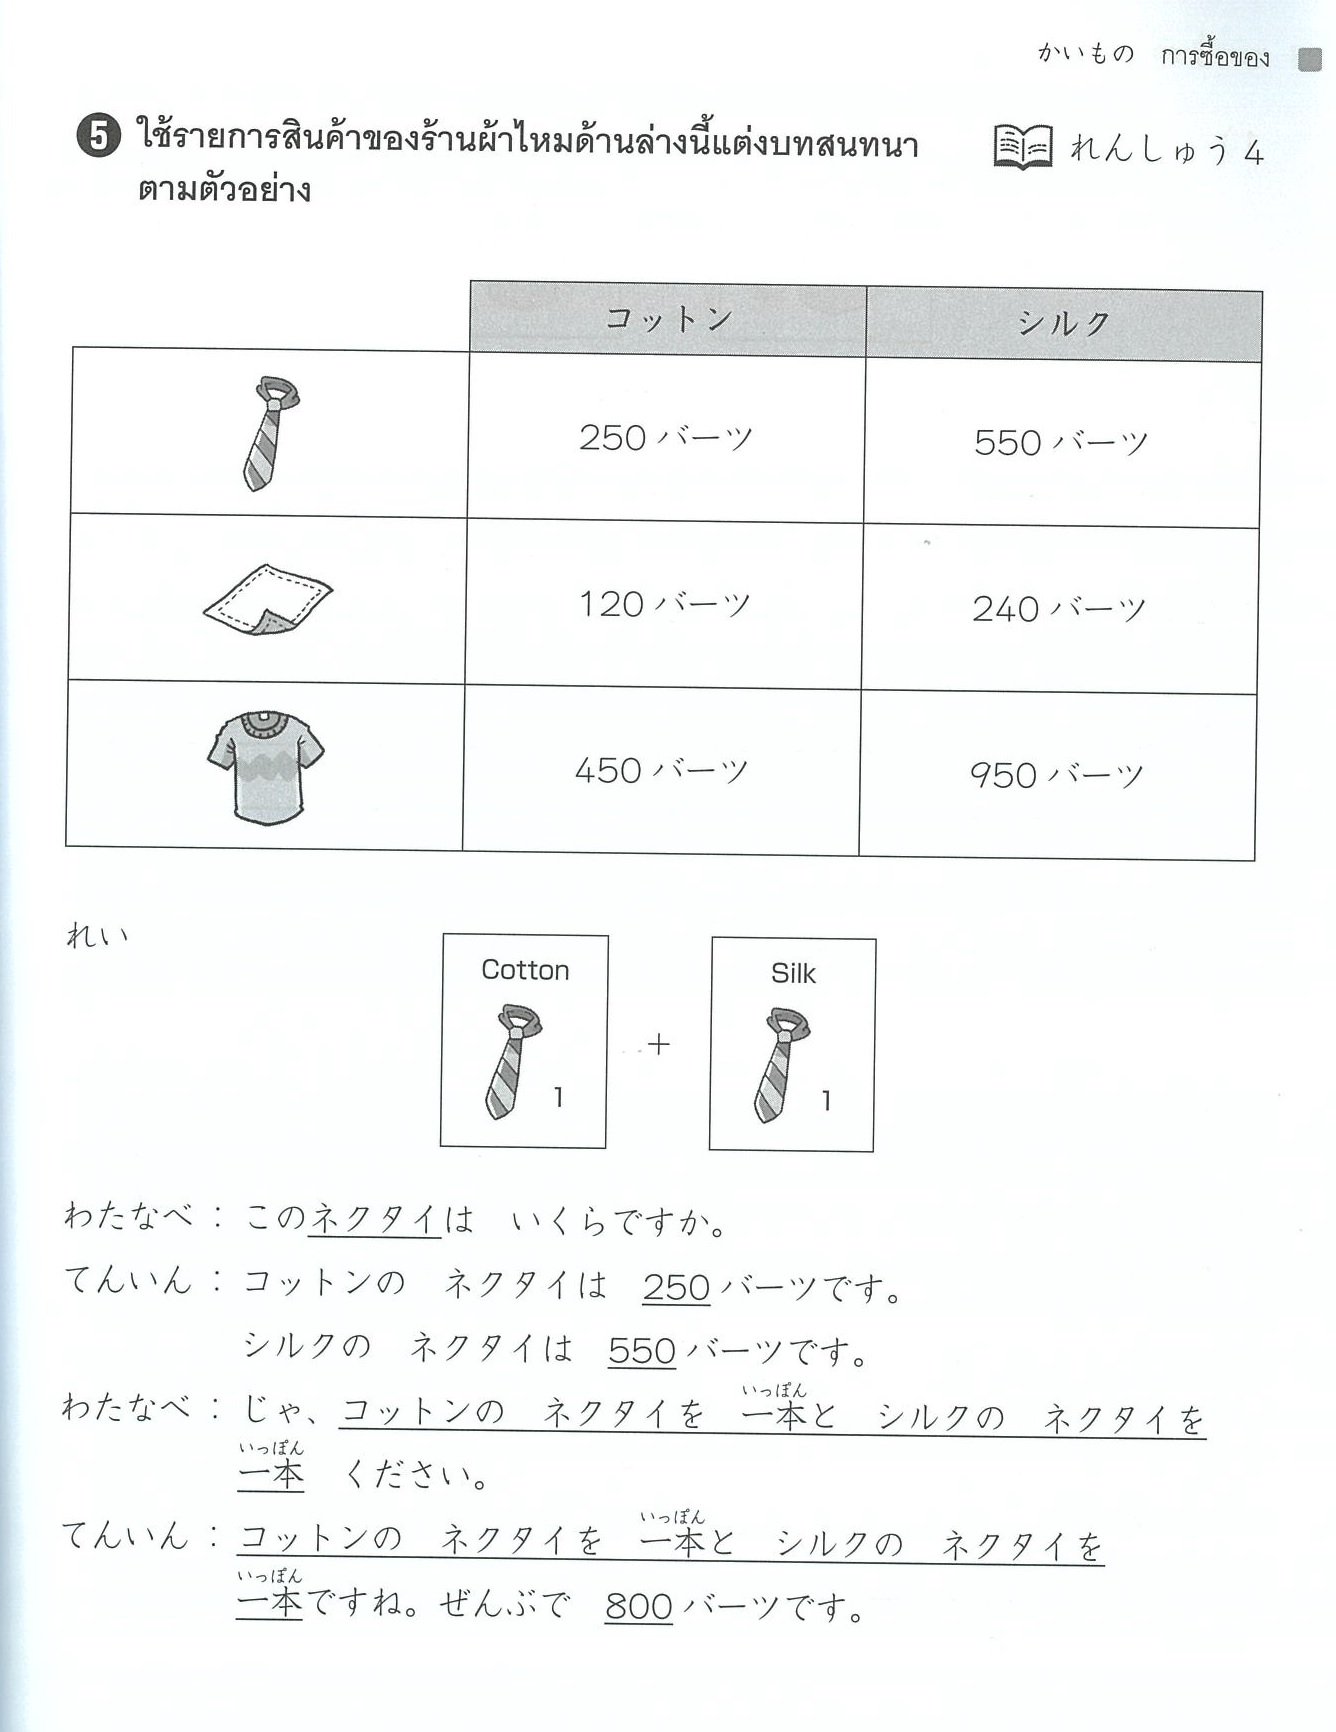 かいもの　การซื้อของ
5 ใช้รายการสินค้าของร้านผ้าไหมด้านล่างนี้แต่งบทสนทนา
ตามตัวอย่าง
れんしゅう 4
コットン　シルク
250 バーツ　550 バーツ
120 バーツ　240 バーツ
450 バーツ　950 バーツ
れい
Cotton　Silk
+
1　1
わたなべ：このネクタイは　いくらですか。
てんいん：コットンの　ネクタイは　250 バーツです。
シルクの　ネクタイは　550 バーツです。
いっぽん
わたなべ：じゃ、コットンの　ネクタイを　一本と　シルクの　ネクタイを
いっぽん
一本　ください。
いっぽん
てんいん：コットンの　ネクタイを　一本と　シルクの　ネクタイを
いっぽん
一本ですね。ぜんぶで　800 バーツです。